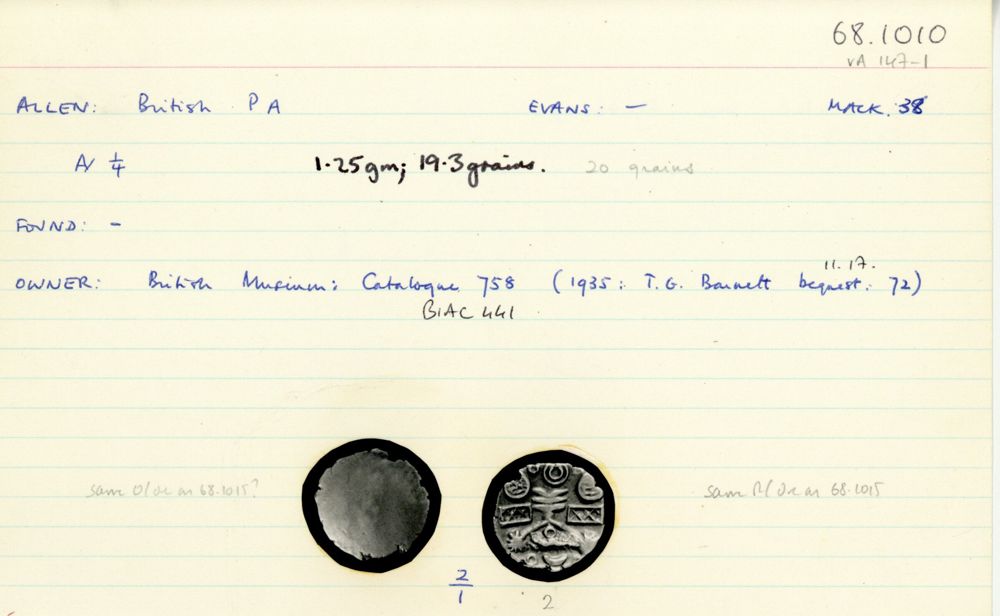 68.1010
VA 147-1
ALLEN: British PA EVANS: — MACK. 38
A/ 1/4 1.25gm; 19.3 grains. 20 grains
FOUND: -
OWNER: British Museum: Catalogue 758 (1935: 11.17. T.G. Barnett bequest: 72)
BIAC 441
same O/die as 68.1015? same R/die as 68.1015
2/1
2